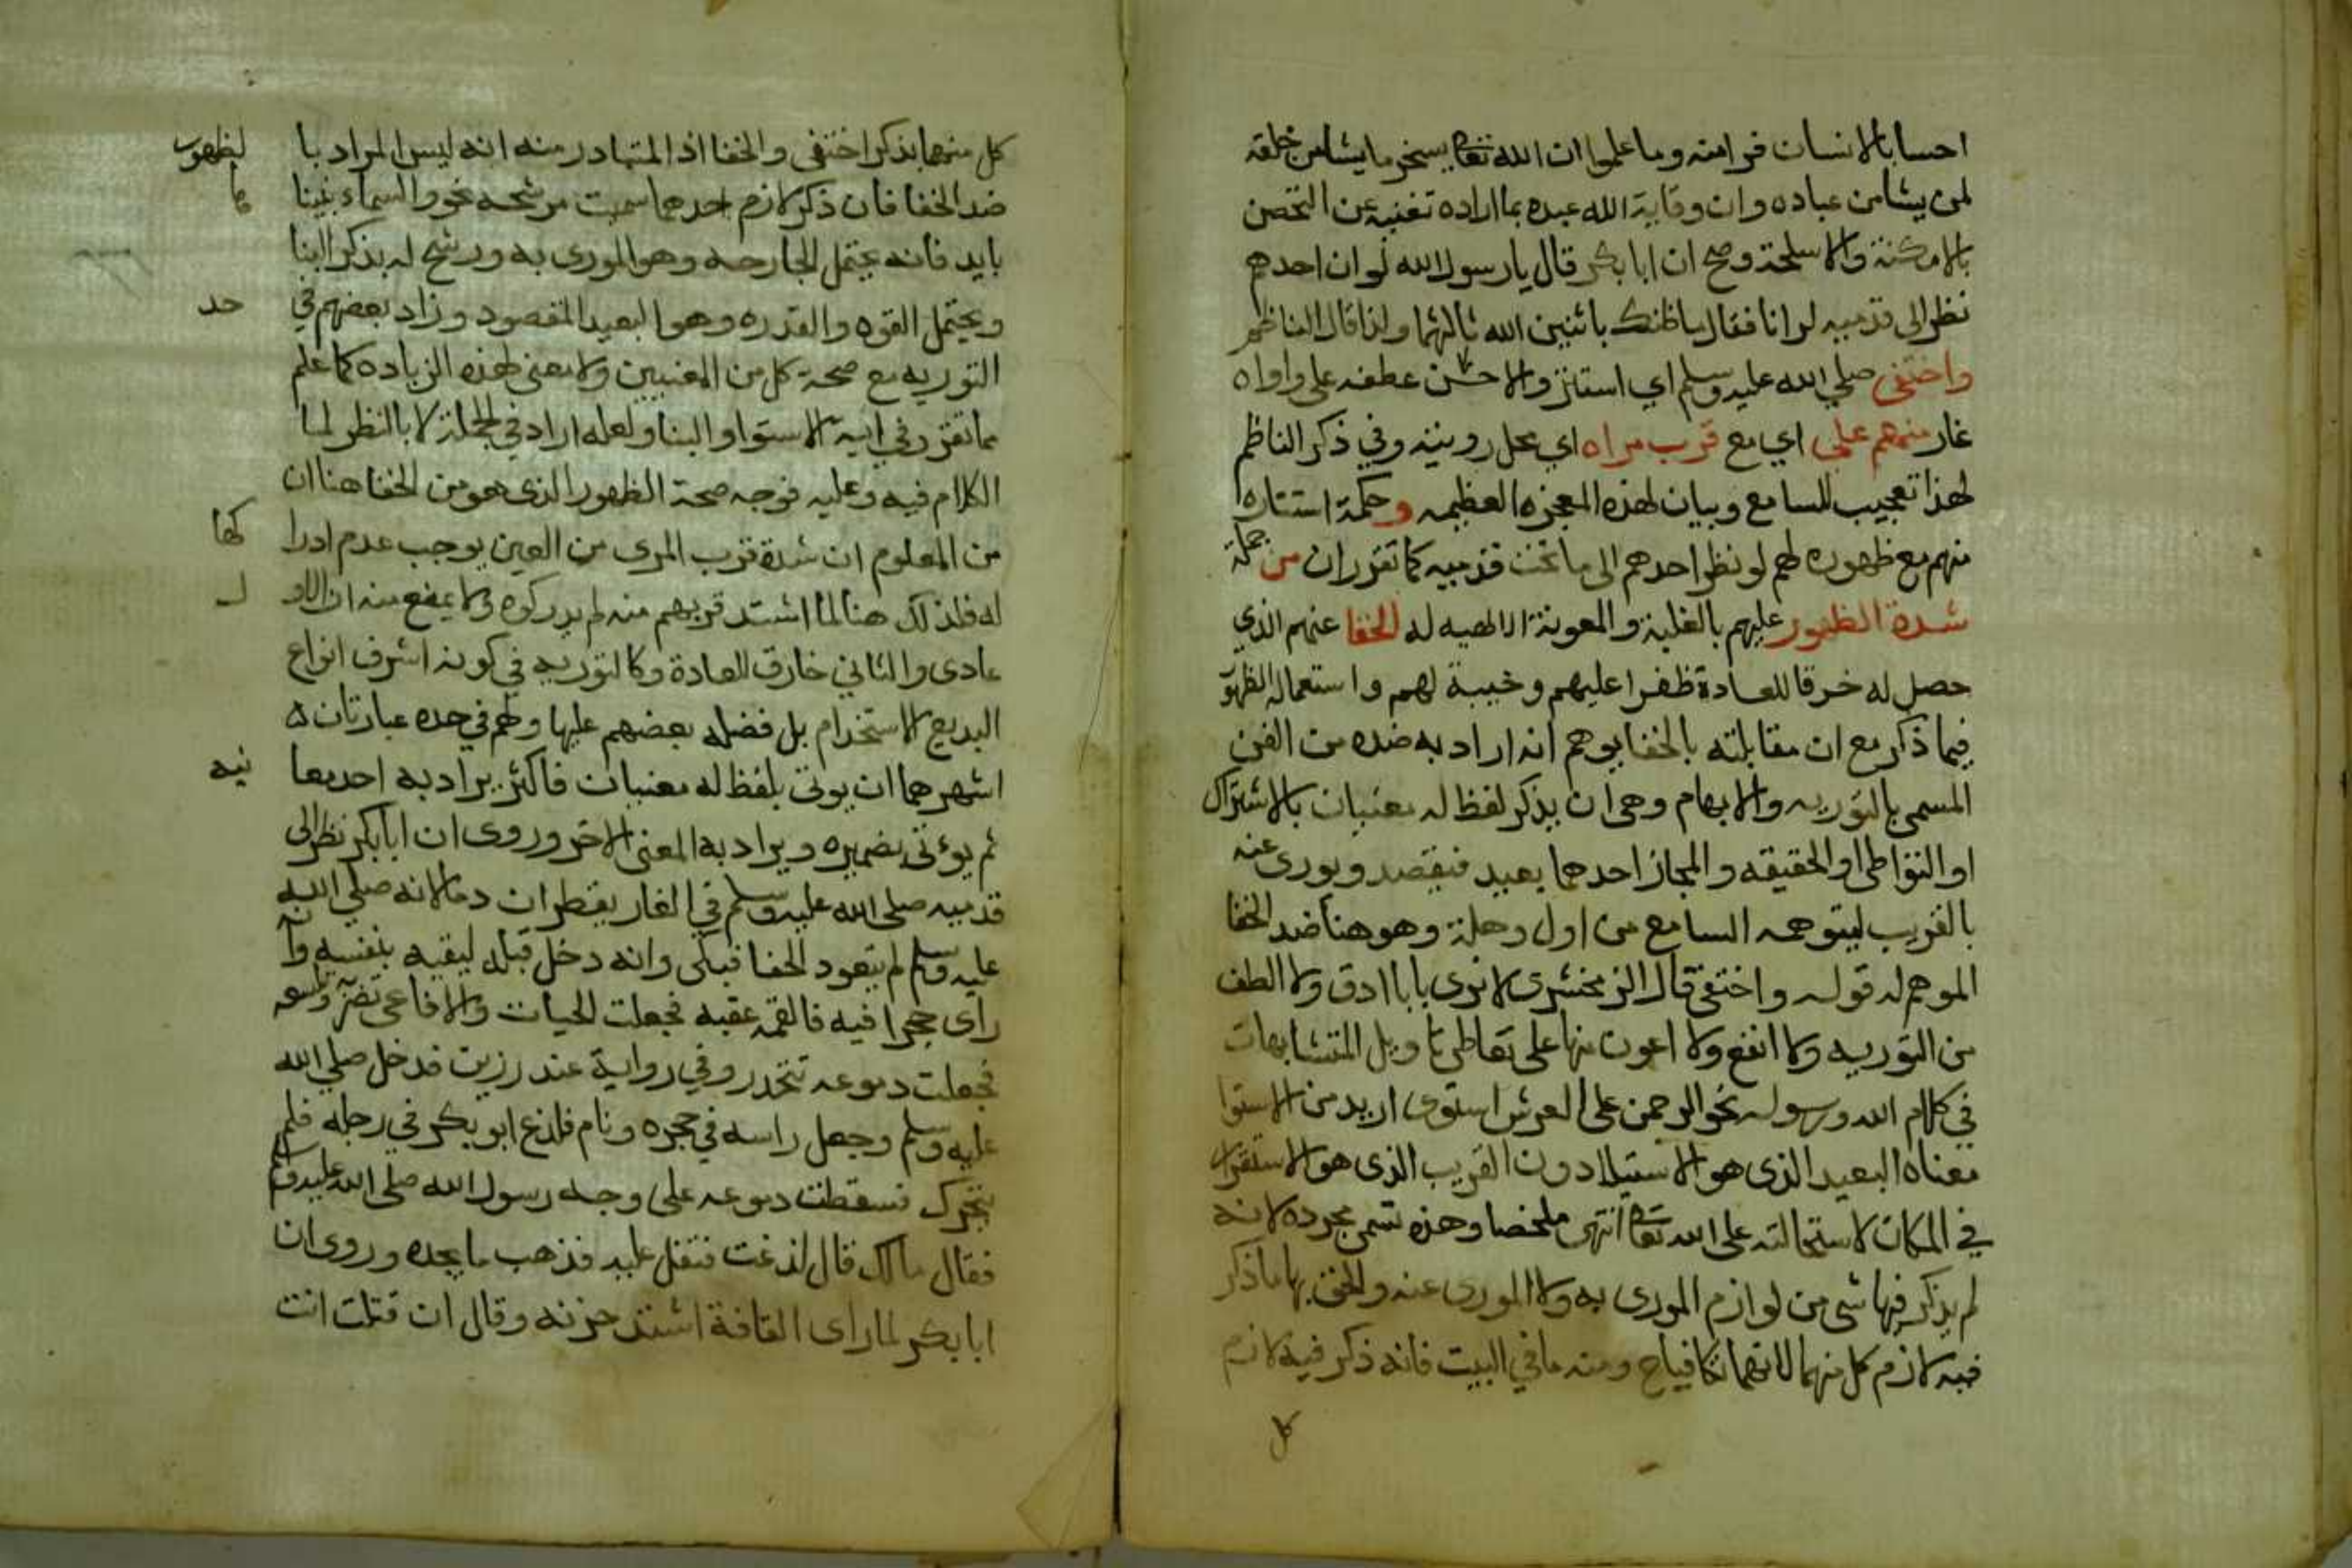 احسابا لانسان فرامنه وما علموا ان الله تعا يسخر ما يشا من خلقه
لمن يشا من عباده وان وقاية الله عبده بما اراده تغنيه عن التحصن
بالامكنة والاسلحة وصح ان ابا بكر قال يا رسول الله لو ان احدهم
نظر الى قدميه لرانا فقال ما ظنك باثنين الله ثالثهما ولذا قال الناظم
واختفى صلي الله عليه وسلم اي استتر والاحسن عطفه على واواه
غار منهم على اي مع قرب مراه اي محل رويته وفي ذكر الناظم
لهذا تعجيب للسامع وبيان لهذه المعجزه العظيمه وحكمة استتاره
منهم مع ظهوره لهم لو نظر احدهم الى ما تحت قدميه كما تقرر ان من جملة
شدة الظهور عليهم بالغلبة والمعونة الالهيه له الخفا عنهم الذي
حصل له خرقا للعادة ظفرا عليهم وخيبة لهم واستعمال الظهور
فيما ذكر مع ان مقابلته بالخفا يوهم انه اراد به ضده من الفن
المسمى بالتوريه والايهام وهي ان يذكر لفظ له معنيان بالاشتراك
او التواطي او الحقيقه والمجاز احدهما بعيد فيقصد ويورى عنه
بالقريب ليتوهمه السامع من اول وهلة وهو هنا ضد الخفا
الموهم له قوله واختفى قال الزمخشرى لا نرى بابا ادق ولا الطف
من التوريه ولا انفع ولا اعون منها على تعاطي تاويل المتشابهات
في كلام الله ورسوله نحو الرحمن على العرش استوى اريد من الاستوا
معناه البعيد الذى هو الاستيلا دون القريب الذى هو الاستقرار
في المكان لاستحالته على الله تعا انتهى ملخصا وهذه تسمى مجرده لانه
لم يذكر فيها شى من لوازم المورى به ولا المورى عنه والحق بها ما ذكر
فيه لازم كل منهما لانهما تكافيا ح ومنه ما في البيت فانه ذكر فيه لازم
كل
كل منهما بذكر اختفى والخفا اذ المتبادر منه انه ليس المراد با لظهور
ضد الخفا فان ذكر لازم احدهما سميت مرشحه نحو والسماء بنينا ها
بايد فانه يحتمل الجارحه وهو المورى به ورشح له بذكر البنا
ويحتمل القوه والقدره وهو البعيد المقصود وزاد بعضهم في حد
التوريه مع صحة كل من المعنيين ولا معنى لهذه الزياده كما علم
مما تقرر في اية الاستوا والبنا ولعله اراد في الجملة لا بالنظر لما
الكلام فيه وعليه فوجه صحة الظهور الذى هو من الخفا هنا ان
من المعلوم ان شدة قرب المرى من العين يوجب عدم ادرا كها
له فلذلك هنا لما اشتد قربهم منه لم يدركوه ولا يمنع منه ان الاو ل
عادى والثاني خارق للعادة وكالتوريه في كونه اشرف انواع
البديع الاستخدام بل فضله بعضهم عليها ولهم في حده عبارتان ه
اشهرهما ان يوتى بلفظ له معنيان فاكثر يراد به احد معا نيه
ثم يؤتى بضميره ويراد به المعنى الاخر وروى ان ابا بكر نظر الى
قدميه صلى الله عليه وسلم في الغار يقطران دما لانه صلي الله
عليه وسلم لم يتعود الحفا فبكى وانه دخل قبله ليقيه بنفسه وانه
راى جحرا فيه فالقمه عقبه فجعلت الحيات والافاعى تضربه وتلسعه
فجعلت دموعه تتحدر وفي رواية عند رزين فدخل صلي الله
عليه وسلم وجعل راسه في حجره ونام فلدغ ابو بكر في رجله فلم
يتحرك فسقطت دموعه على وجه رسول الله صلى الله عليه وسلم
فقال مالك قال لدغت فتفل عليه فذهب ما يجده وروى ان
ابا بكر لما راى القافة اشتد حزنه وقال ان قتلت انت